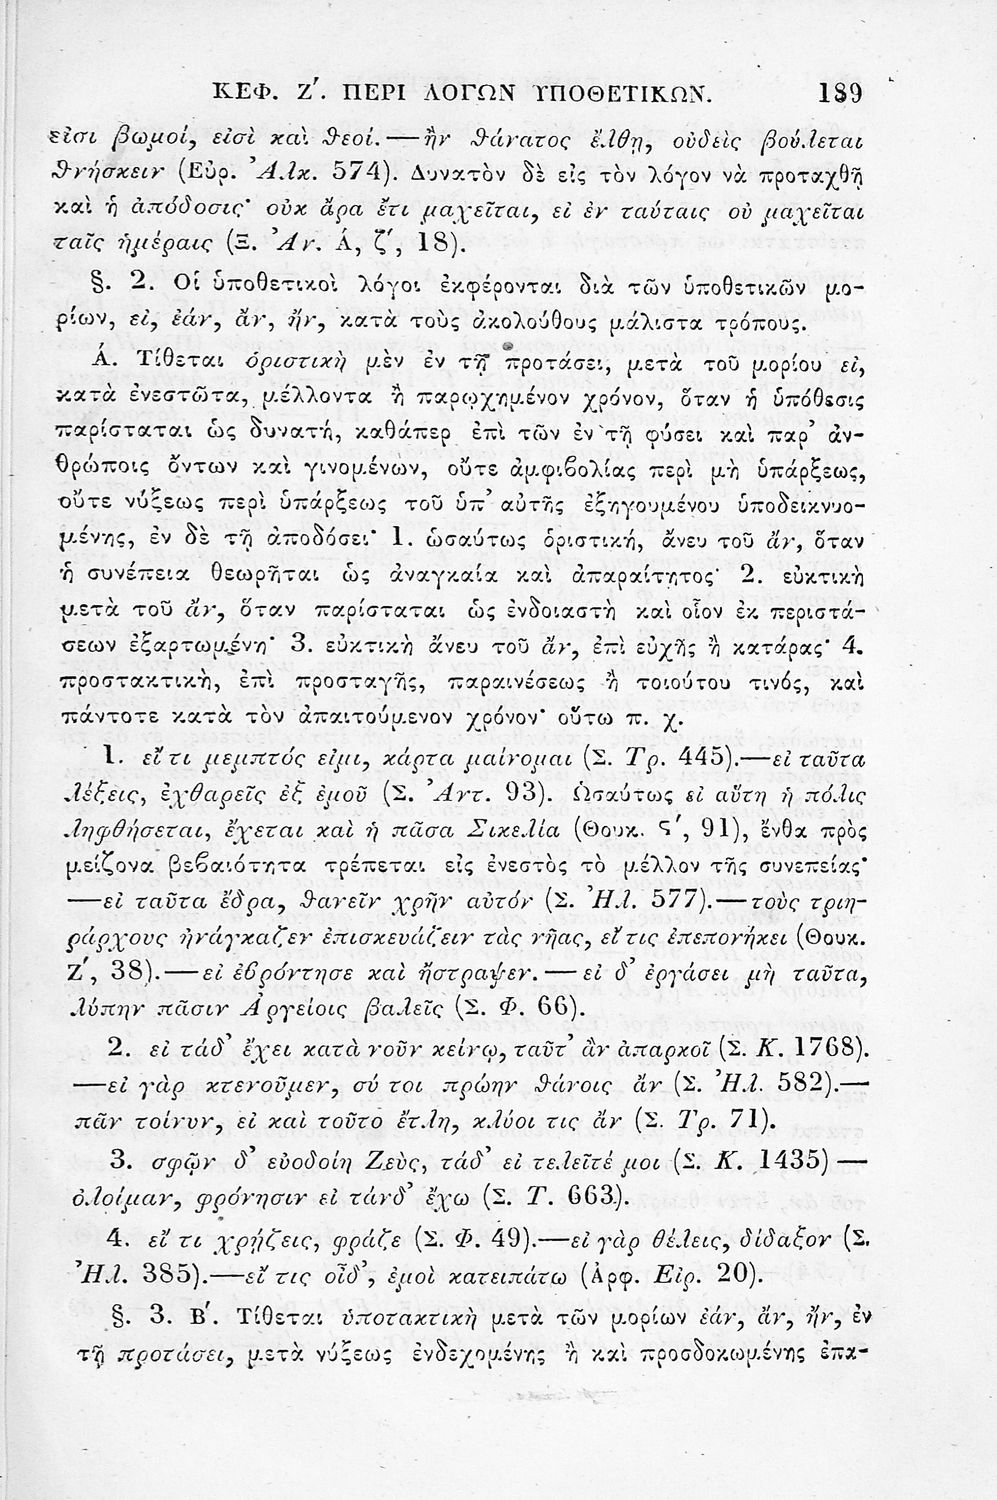 ΚΕΦ. Ζʹ. ΠΕΡΙ ΛΟΓΩΝ ΥΠΟΘΕΤΙΚΩΝ. 189
εἰσι βωμοί, εἰσὶ καὶ ϑεοί.—ἢν ϑάνατος ἔλθῃ, οὐδεὶς βούλεται
ϑνήσκειν (Εὐρ. Ἀλκ. 574). Δυνατὸν δὲ εἰς τὸν λόγον νὰ προταχθῇ
καὶ ἡ ἀπόδοσις· οὐκ ἄρα ἔτι μαχεῖται, εἰ ἐν ταύταις οὐ μαχεῖται
ταῖς ἡμέραις (Ξ. Ἀν. Ά, ζʹ, 18).
§. 2. Οἱ ὑποθετικοὶ λόγοι ἐκφέρονται διὰ τῶν ὑποθετικῶν μο-
ρίων, εἰ, ἐάν, ἄν, ἤν, κατὰ τοὺς ἀκολούθους μάλιστα τρόπους.
Ά. Τίθεται ὁριστικὴ μὲν ἐν τῇ προτάσει, μετὰ τοῦ μορίου εἰ,
κατὰ ἐνεστῶτα, μέλλοντα ἢ παρῳχημένον χρόνον, ὅταν ἡ ὑπόθεσις
παρίσταται ὡς δυνατή, καθάπερ ἐπὶ τῶν ἐν τῇ φύσει καὶ παρ᾽ ἀν-
θρώποις ὄντων καὶ γινομένων, οὔτε ἀμφιβολίας περὶ μὴ ὑπάρξεως,
οὔτε νύξεως περὶ ὑπάρξεως τοῦ ὑπ᾽ αὐτῆς ἐξηγουμένου ὑποδεικνυο-
μένης, ἐν δὲ τῇ ἀποδόσει· 1. ὡσαύτως ὁριστική, ἄνευ τοῦ ἄν, ὅταν
ἡ συνέπεια θεωρῆται ὡς ἀναγκαία καὶ ἀπαραίτητος· 2. εὐκτικὴ
μετὰ τοῦ ἄν, ὅταν παρίσταται ὡς ἐνδοιαστὴ καὶ οἷον ἐκ περιστά-
σεων ἐξαρτωμένη· 3. εὐκτικὴ ἄνευ τοῦ ἄν, ἐπὶ εὐχῆς ἢ κατάρας· 4.
προστακτικὴ, ἐπὶ προσταγῆς, παραινέσεως ἢ τοιούτου τινός, καὶ
πάντοτε κατὰ τὸν ἀπαιτούμενον χρόνον· οὕτω π. χ.
1. εἴ τι μεμπτός εἰμι, κάρτα μαίνομαι (Σ. Τρ. 445).—εἰ ταῦτα
λέξεις, ἐχθαρεῖς ἐξ ἐμοῦ (Σ. Ἀντ. 93). Ὡσαύτως εἰ αὕτη ἡ πόλις
ληφθήσεται, ἔχεται καὶ ἡ πᾶσα Σικελία (Θουκ. Ϛʹ, 91), ἔνθα πρὸς
μείζονα βεβαιότητα τρέπεται εἰς ἐνεστὸς τὸ μέλλον τῆς συνεπείας·
—εἰ ταῦτα ἔδρα, ϑανεῖν χρῆν αὐτόν (Σ. Ἠλ. 577).—τοὺς τριη-
ράρχους ἠνάγκαζεν ἐπισκευάζειν τὰς νῆας, εἴ τις ἐπεπονήκει (Θουκ.
Ζʹ, 38).—εἰ ἐβρόντησε καὶ ἤστραψεν.—εἰ δ᾽ ἐργάσει μὴ ταῦτα,
λύπην πᾶσιν Ἀργείοις βαλεῖς (Σ. Φ. 66).
2. εἰ τάδ᾽ ἔχει κατὰ νοῦν κείνῳ, ταῦτ᾽ ἂν ἀπαρκοῖ (Σ. Κ. 1768).
—εἰ γὰρ κτενοῦμεν, σύ τοι πρώην ϑάνοις ἄν (Σ. Ἠλ. 582).—
πᾶν τοίνυν, εἰ καὶ τοῦτο ἔτλη, κλύοι τις ἄν (Σ. Τρ. 71).
3. σφῷν δ᾽ εὐοδοίη Ζεὺς, τάδ᾽ εἰ τελεῖτέ μοι (Σ. Κ. 1435)—
ὀλοίμαν, φρόνησιν εἰ τάνδ᾽ ἔχω (Σ. Τ. 663).
4. εἴ τι χρῄζεις, φράζε (Σ. Φ. 49).—εἰ γὰρ θέλεις, δίδαξον (Σ.
Ἠλ. 385).—εἴ τις οἶδ᾽, ἐμοὶ κατειπάτω (Ἀρφ. Εἰρ. 20).
§. 3. Βʹ. Τίθεται ὑποτακτικὴ μετὰ τῶν μορίων ἐάν, ἄν, ἤν, ἐν
τῇ προτάσει, μετὰ νύξεως ἐνδεχομένης ἢ καὶ προσδοκωμένης ἐπα-